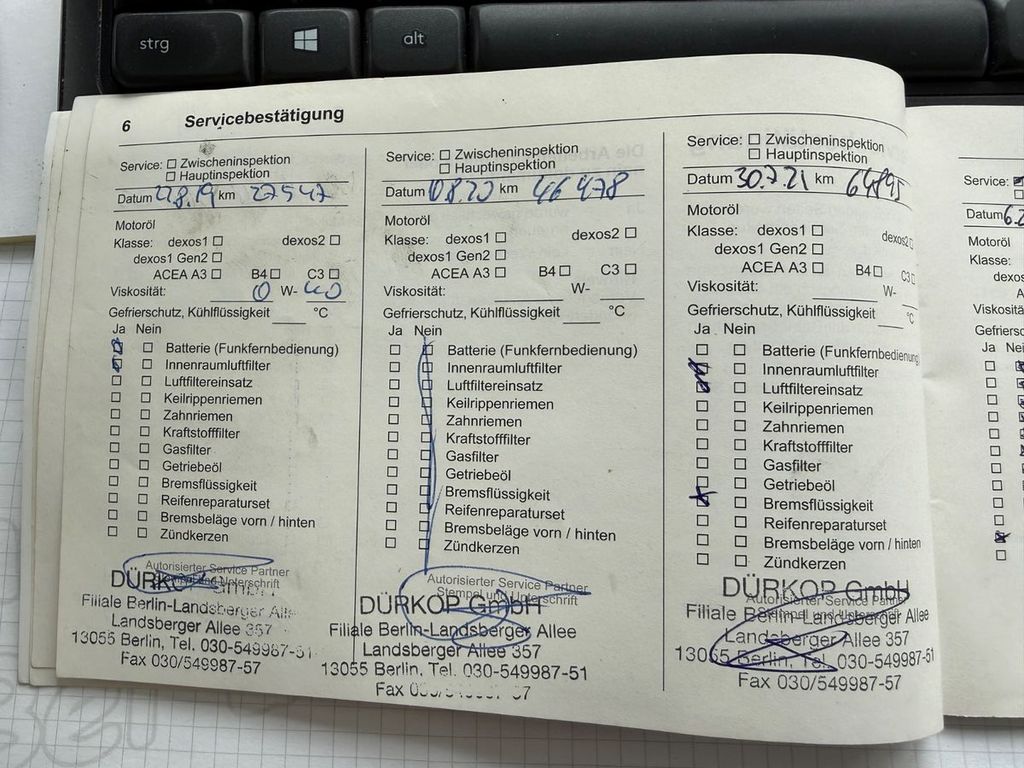 strg
alt
6 Servicebestätigung
Service: ☐ Zwischeninspektion
☐ Hauptinspektion
Datum km 27547
Motoröl
Klasse: dexos1 ☐ dexos2 ☐
dexos1 Gen2 ☐
ACEA A3 ☐ B4 ☐ C3 ☐
Viskosität: 0 W- 40
Gefrierschutz, Kühlflüssigkeit ____ °C
Ja Nein
Batterie (Funkfernbedienung)
Innenraumluftfilter
Luftfiltereinsatz
Keilrippenriemen
Zahnriemen
Kraftstofffilter
Gasfilter
Getriebeöl
Bremsflüssigkeit
Reifenreparaturset
Bremsbeläge vorn / hinten
Zündkerzen
Autorisierter Service Partner
Stempel und Unterschrift
DÜRKOP GmbH
Filiale Berlin-Landsberger Allee
Landsberger Allee 357
13055 Berlin, Tel. 030-549987-51
Fax 030/549987-57
Service: ☐ Zwischeninspektion
☐ Hauptinspektion
Datum km 46478
Motoröl
Klasse: dexos1 ☐ dexos2 ☐
dexos1 Gen2 ☐
ACEA A3 ☐ B4 ☐ C3 ☐
Viskosität: ____ W- ____
Gefrierschutz, Kühlflüssigkeit ____ °C
Ja Nein
Batterie (Funkfernbedienung)
Innenraumluftfilter
Luftfiltereinsatz
Keilrippenriemen
Zahnriemen
Kraftstofffilter
Gasfilter
Getriebeöl
Bremsflüssigkeit
Reifenreparaturset
Bremsbeläge vorn / hinten
Zündkerzen
Autorisierter Service Partner
Stempel und Unterschrift
DÜRKOP GmbH
Filiale Berlin-Landsberger Allee
Landsberger Allee 357
13055 Berlin, Tel. 030-549987-51
Fax
Service: ☐ Zwischeninspektion
☐ Hauptinspektion
Datum 30.7.21 km
Motoröl
Klasse: dexos1 ☐ dexos2 ☐
dexos1 Gen2 ☐
ACEA A3 ☐ B4 ☐ C3 ☐
Viskosität: ____ W- ____
Gefrierschutz, Kühlflüssigkeit ____ °C
Ja Nein
Batterie (Funkfernbedienung
Innenraumluftfilter
Luftfiltereinsatz
Keilrippenriemen
Zahnriemen
Kraftstofffilter
Gasfilter
Getriebeöl
Bremsflüssigkeit
Reifenreparaturset
Bremsbeläge vorn / hinten
Zündkerzen
Autorisierter Service Partner
Stempel und Unterschrift
DÜRKOP GmbH
Filiale Berlin-Landsberger Allee
Landsberger Allee 357
13055 Berlin, Tel. 030-549987-51
Fax 030/549987-57
Service:
Datum
Motoröl
Klasse:
Ja